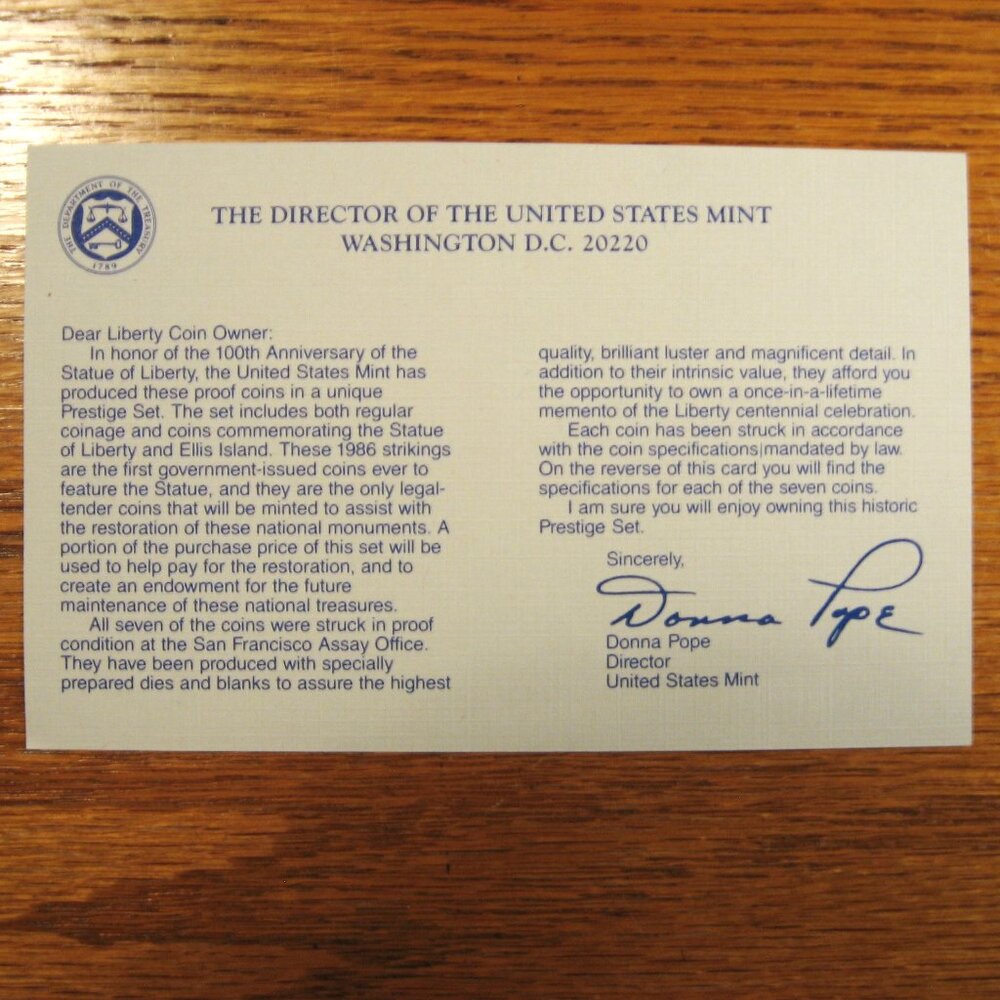 THE DEPARTMENT OF THE TREASURY
1789
THE DIRECTOR OF THE UNITED STATES MINT
WASHINGTON D.C. 20220
Dear Liberty Coin Owner:
In honor of the 100th Anniversary of the
Statue of Liberty, the United States Mint has
produced these proof coins in a unique
Prestige Set. The set includes both regular
coinage and coins commemorating the Statue
of Liberty and Ellis Island. These 1986 strikings
are the first government-issued coins ever to
feature the Statue, and they are the only legal-
tender coins that will be minted to assist with
the restoration of these national monuments. A
portion of the purchase price of this set will be
used to help pay for the restoration, and to
create an endowment for the future
maintenance of these national treasures.
All seven of the coins were struck in proof
condition at the San Francisco Assay Office.
They have been produced with specially
prepared dies and blanks to assure the highest
quality, brilliant luster and magnificent detail. In
addition to their intrinsic value, they afford you
the opportunity to own a once-in-a-lifetime
memento of the Liberty centennial celebration.
Each coin has been struck in accordance
with the coin specifications|mandated by law.
On the reverse of this card you will find the
specifications for each of the seven coins.
I am sure you will enjoy owning this historic
Prestige Set.
Sincerely,
Donna Pope
Donna Pope
Director
United States Mint